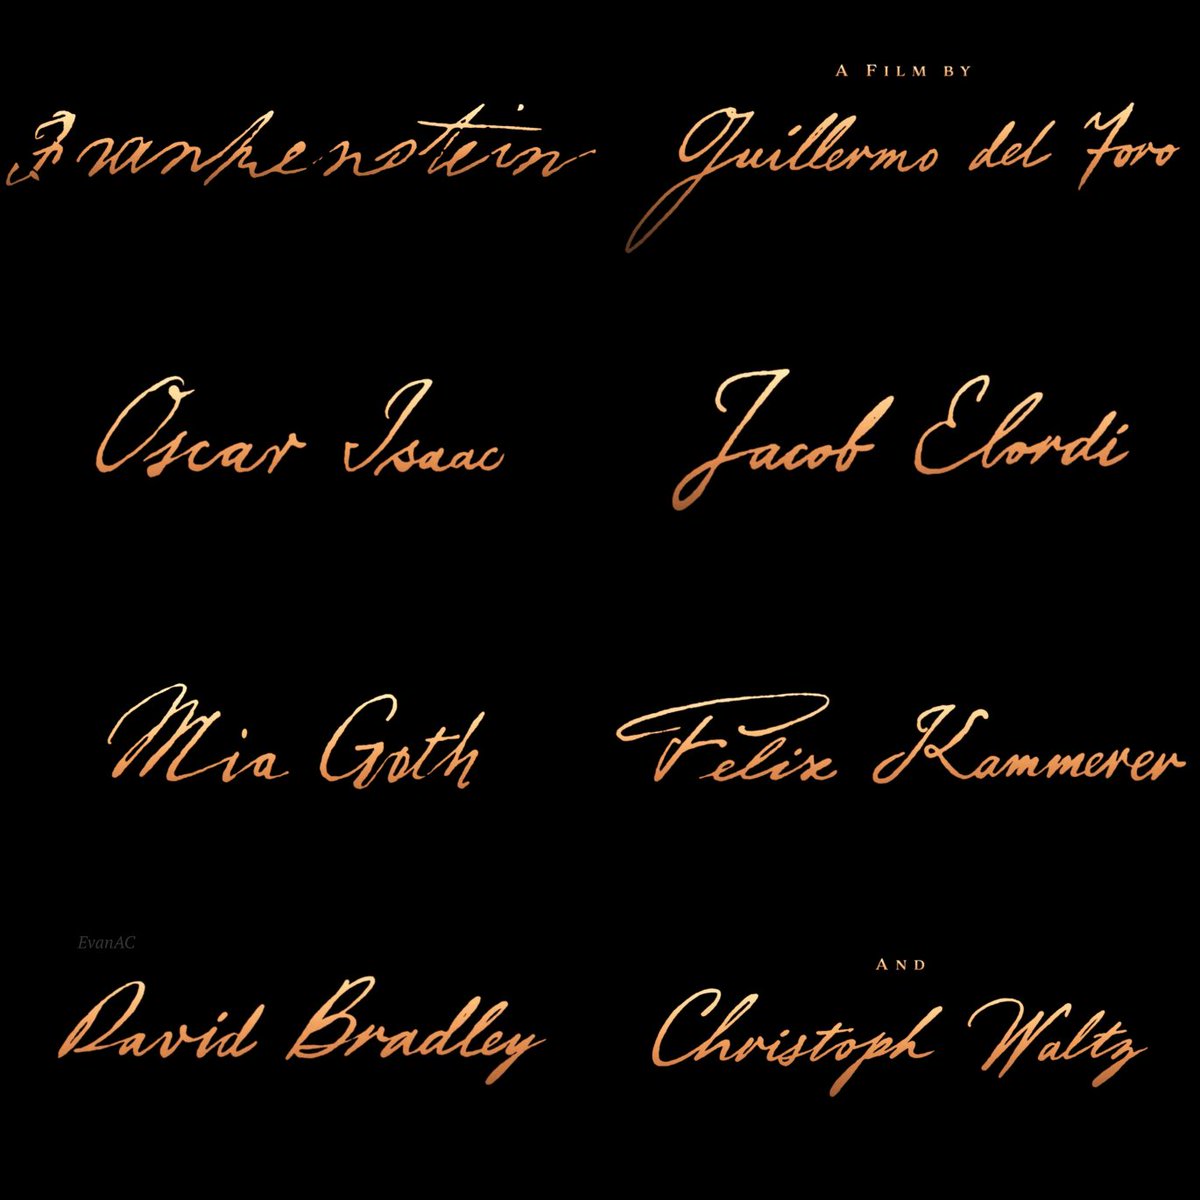 Frankenstein
A FILM BY
Guillermo del Toro
Oscar Isaac
Jacob Elordi
Mia Goth
Felix Kammerer
EvanAC
David Bradley
AND
Christoph Waltz